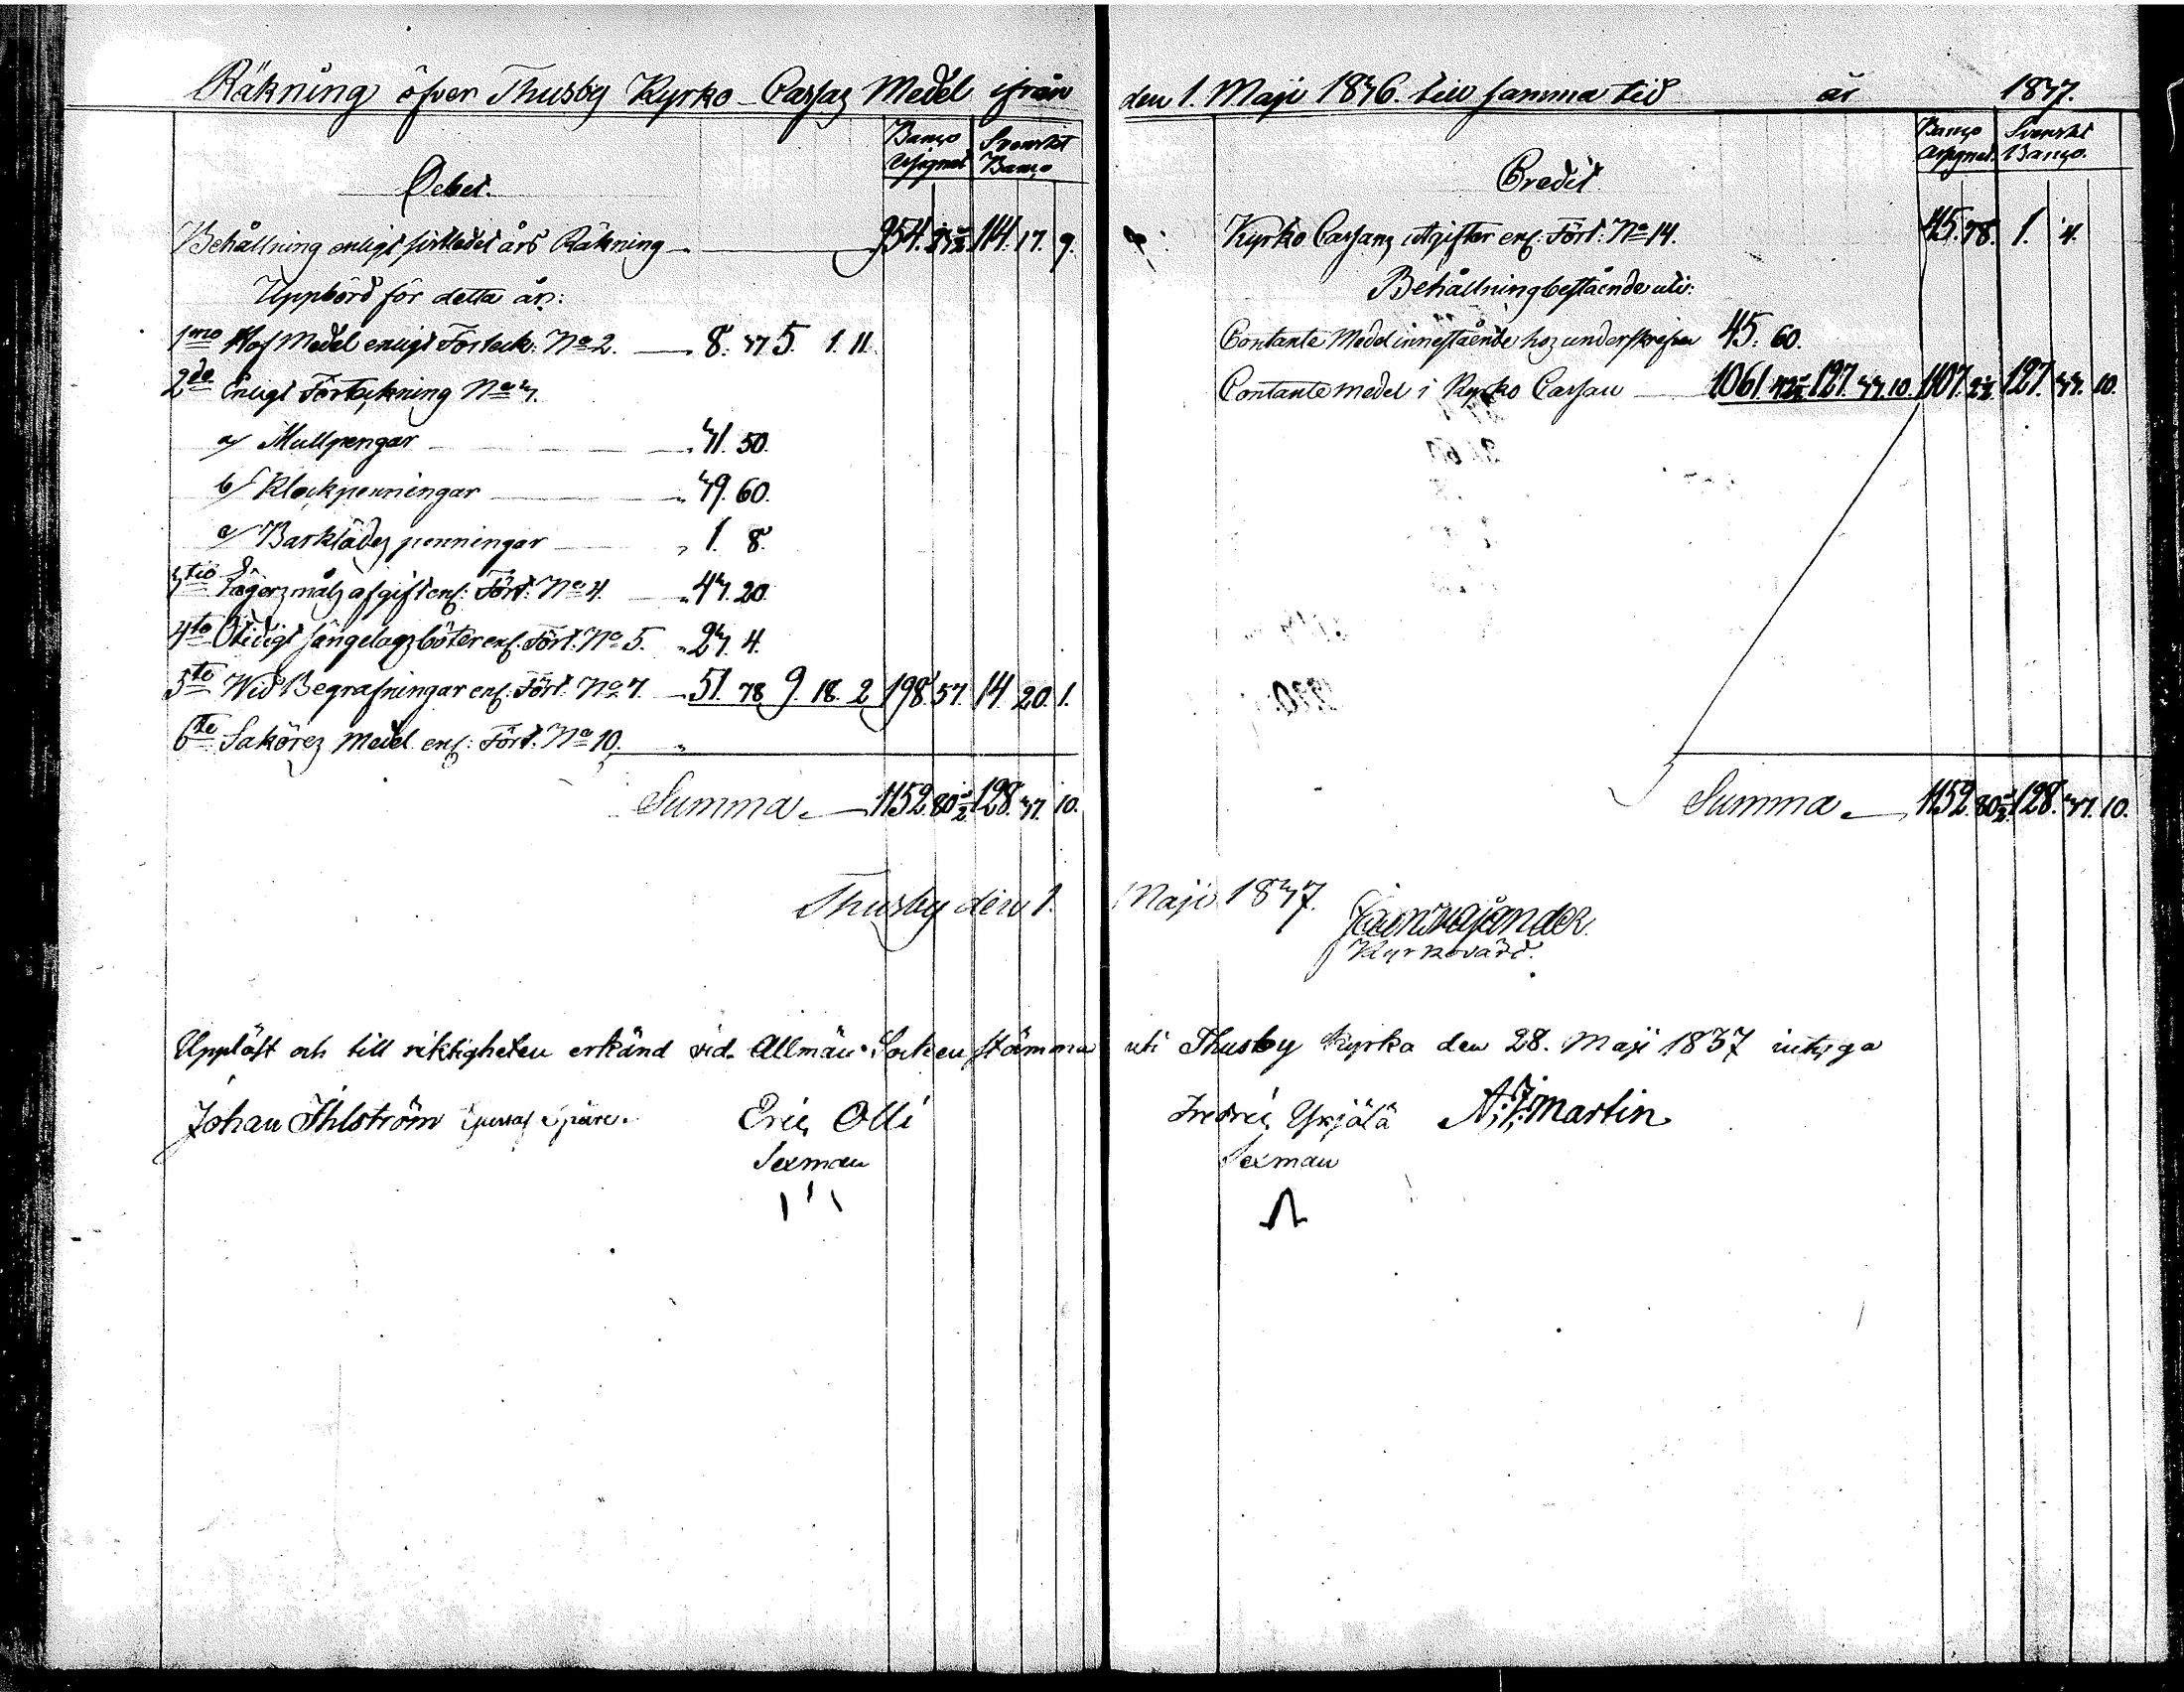 Räkning öfver Thusby Kyrko-Cassas Medel ifrån den 1. Maji 1836. till samma tid år 1837.
Banco Assignat. Svenskt Banco
Debet.
Behållning enligt sistledet års Räkning 954. 114. 17. 9.
Uppbörd för detta år:
1mo Hof Medel enligt Förteck: No 2. 8. 37 5. 1. 11.
2do Enligt Förteckning No 3.
a/ Mullpengar 31. 50.
b/ Klockpenningar 39. 60.
c/ Barklädes penningar 1. 8.
3tio Lägersmåls afgift enl: Fört: No 4. 43. 20.
4to Otidigt sängelags böter enl: Fört: No 5. 23. 4.
5to Wid Begrafningar enl: Fört: No 7. 51. 78 9. 18. 2 198. 57. 14. 20. 1.
6te Saköres Medel enl: Fört: No 10.
Summa 1152. 80½ 128. 37. 10.
Banco Assignat. Svenskt Banco.
Credit
Kyrko Cassans utgifter enl: Fört: No 14. 45. 78. 1. 4.
Behållning bestående uti:
Contante Medel innestående hos underskrifven 45. 60.
Contante medel i Kyrko Cassan 1061. 42½ 127. 33. 10. 1107. 2½ 127. 33. 10.
Summa 1152. 80½ 128. 37. 10.
Thusby den 1. Maji 1837.
Kyrkovärd.
Uppläst och till riktigheten erkänd vid Allmän Sockenstämma uti Thusby Kyrka den 28. Maji 1837 intyga
Johan Ihlström Gustaf Eric Olli Fredric Yrjälä A. F. Martin
Sexman Sexman